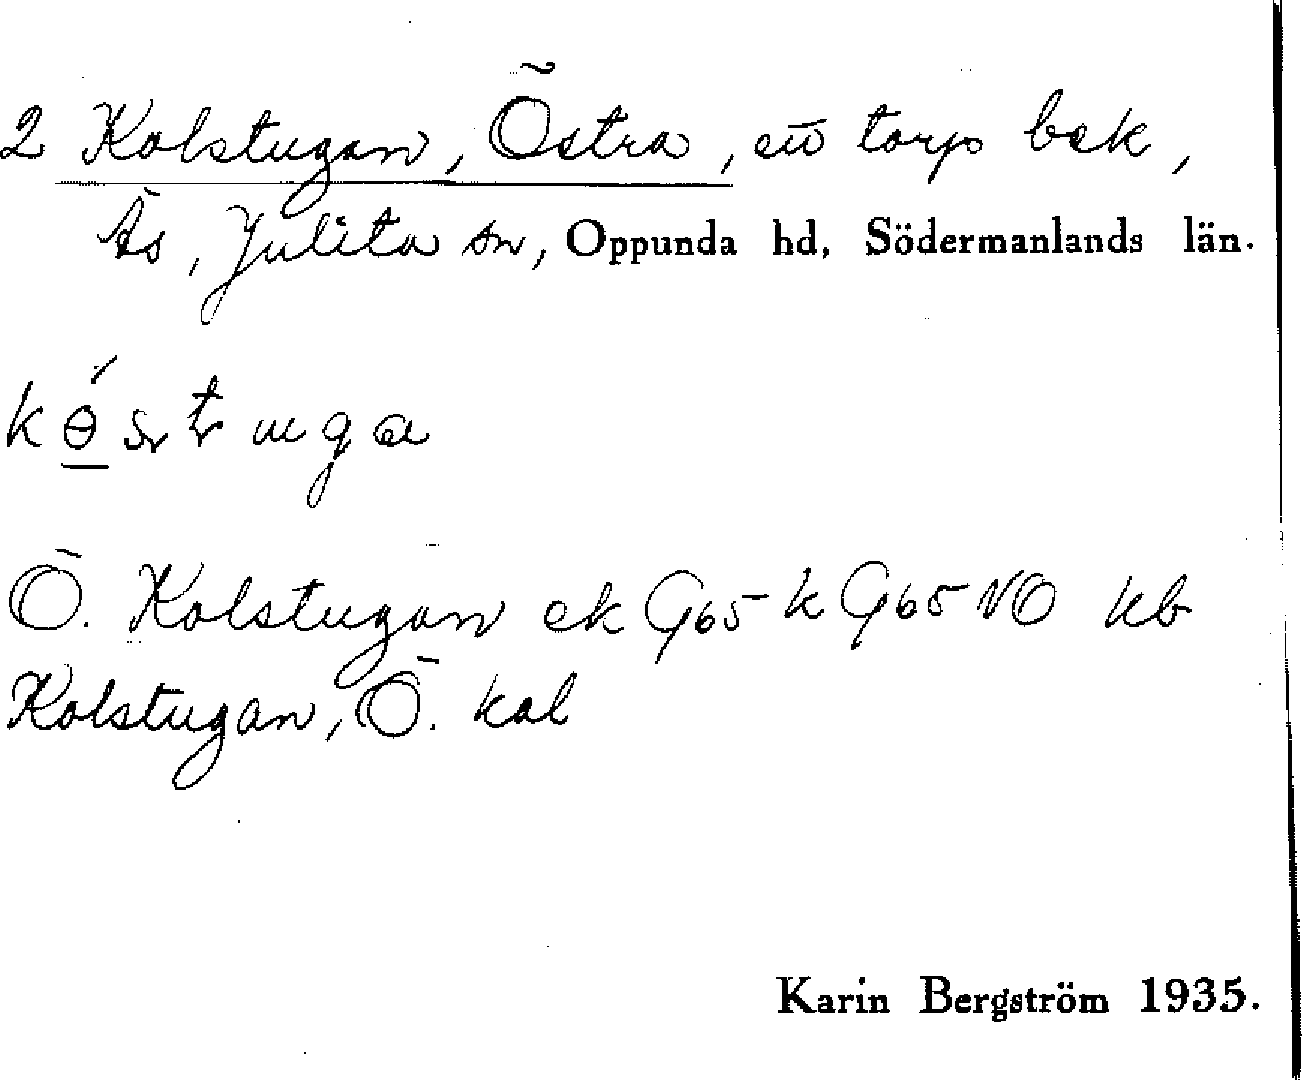 2 Kolstugan, Östra, en torp bsk,
Ås, Julita sn, Oppunda hd, Södermanlands län.
Ö. Kolstugan ek G65 k G65 NO kb
Kolstugan, Ö. kal
Karin Bergström 1935.